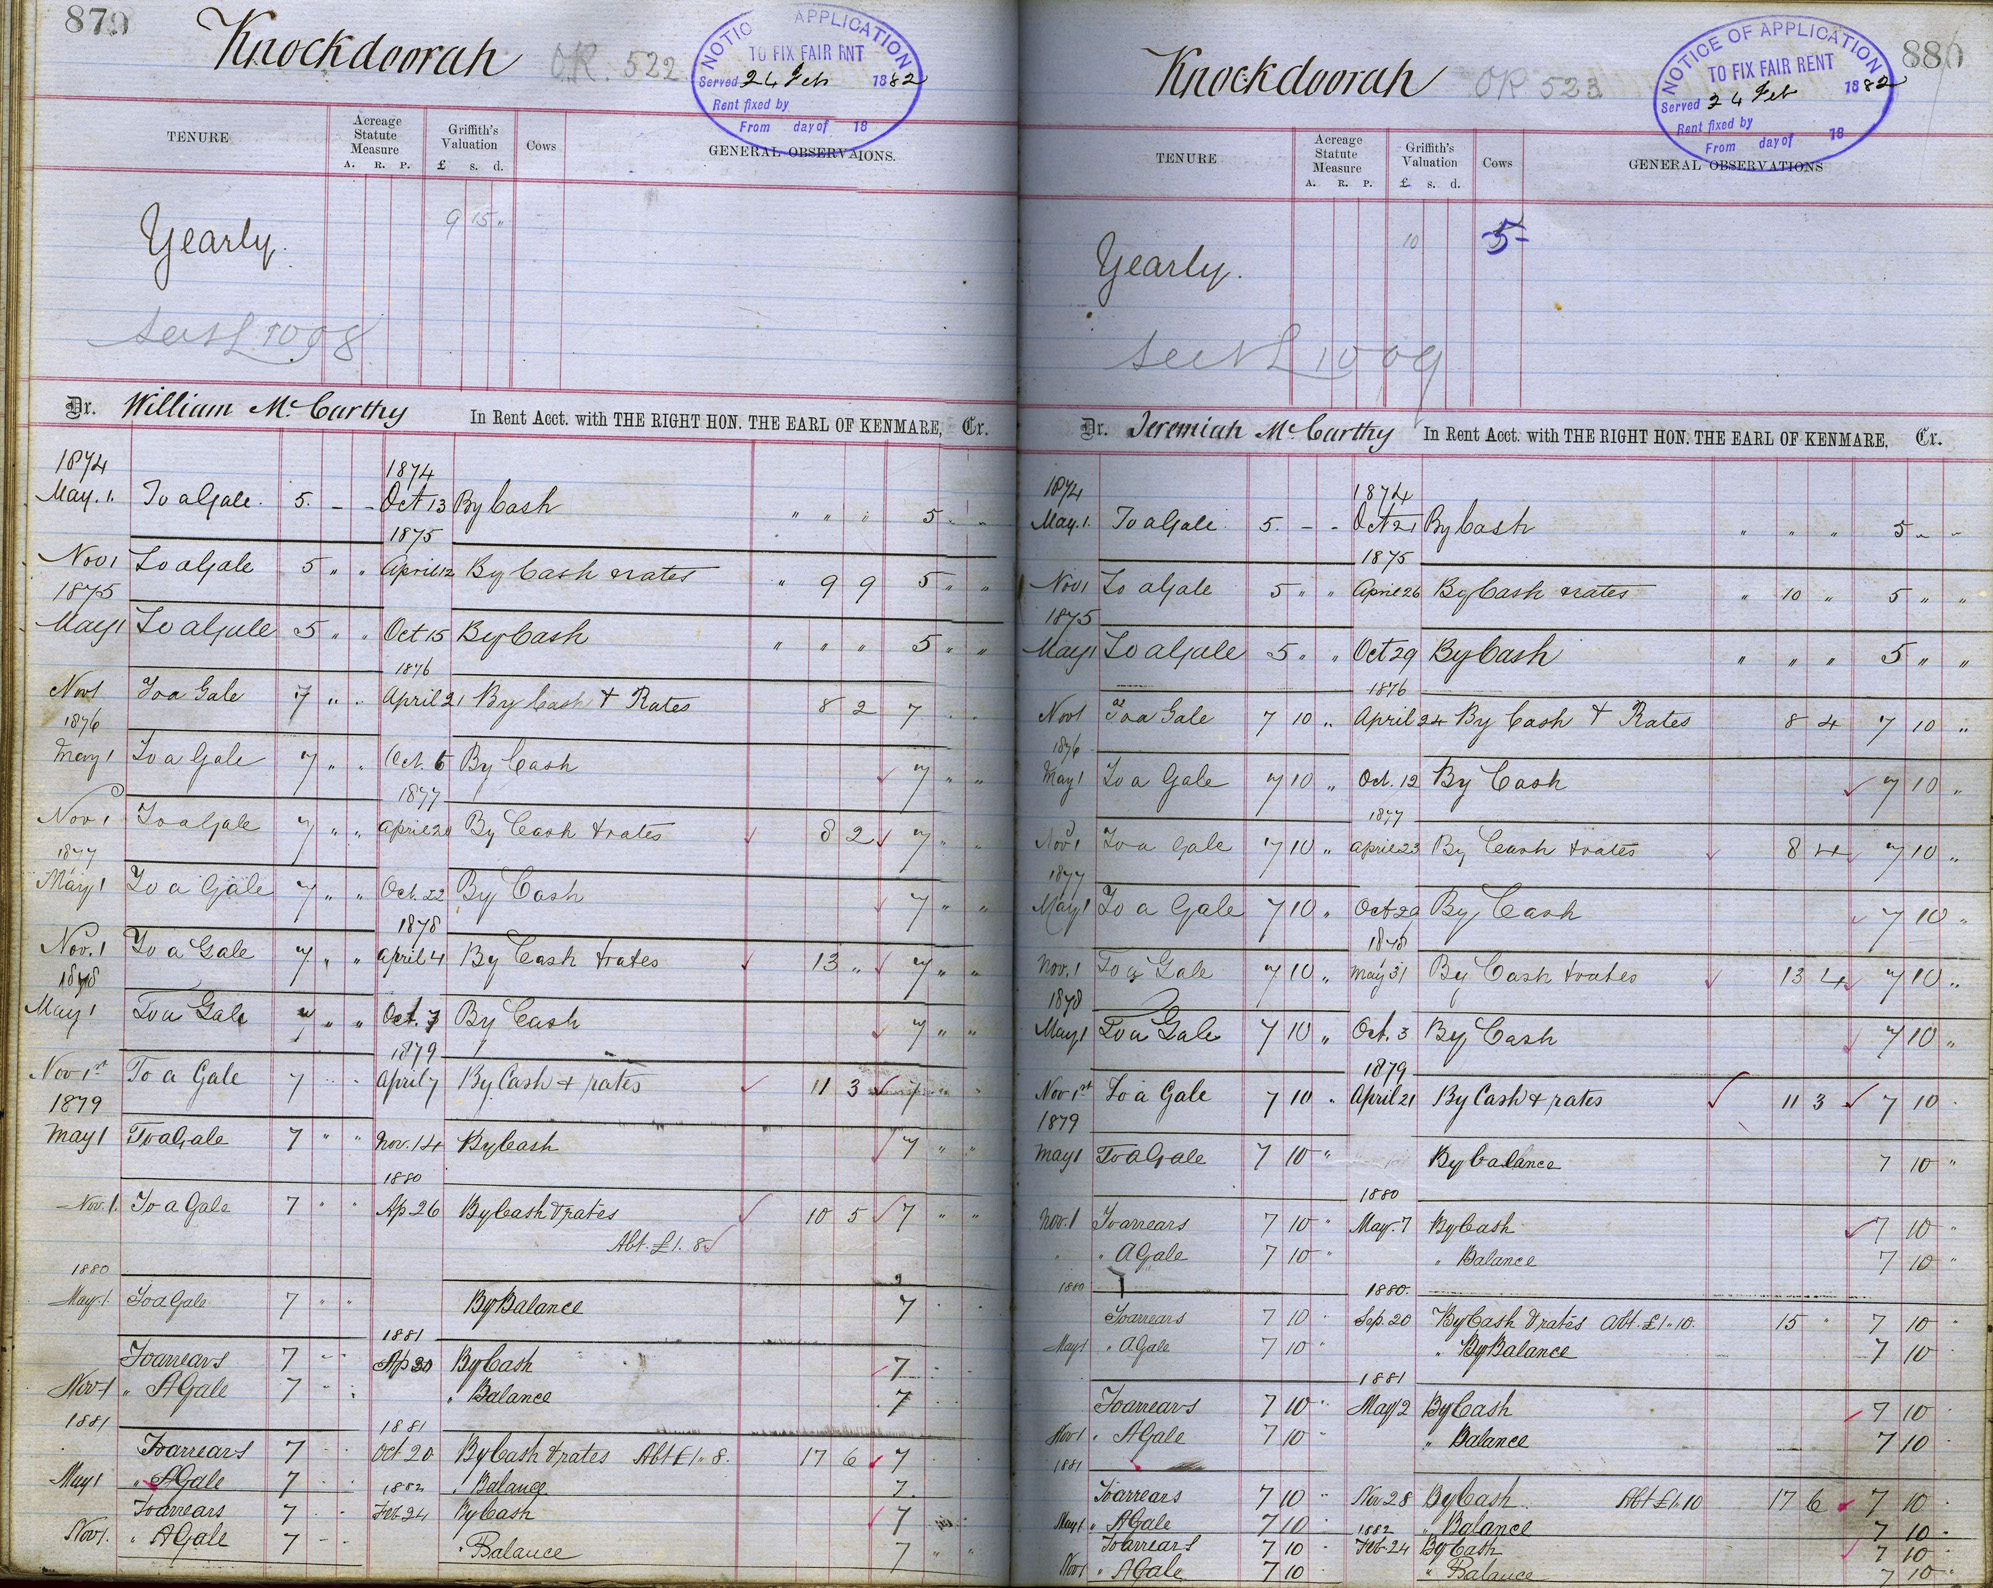 879
Knockdoorah OR. 522
NOTIC APPLICATION
TO FIX FAIR RNT
Served 24 Feb 1882
Rent fixed by
From day of 18
TENURE
Acreage Statute Measure
A. R. P.
Griffith's Valuation
£ s. d.
Cows
GENERAL OBSERVAIONS.
Yearly. 9 15 "
1098
Dr. William McCarthy In Rent Acct. with THE RIGHT HON. THE EARL OF KENMARE, Cr.
1874 1874
May. 1. To a Gale. 5. - - Oct 13 By Cash " " " 5 - -
1875
Nov 1 To a Gale 5 " " April 12 By Cash & rates " 9 9 5 " "
1875
May 1 To a Gale 5 " " Oct 15 By Cash " " " 5 " "
1876
Nov 1 To a Gale 7 " " April 21 By Cash & Rates 8 2 7 " "
1876
May 1 To a Gale 7 " " Oct. 6 By Cash 7 " "
1877
Nov 1 To a Gale 7 " " April 20 By Cash & rates 8 2 7 " "
1877
May 1 To a Gale 7 " " Oct. 22 By Cash 7 " "
1878
Nov. 1 To a Gale 7 " " April 4 By Cash & rates 13 " 7 " "
1878
May 1 To a Gale 7 " " Oct. 7 By Cash 7 " "
1879
Nov 1st To a Gale 7 " " April 7 By Cash & rates 11 3 7 " "
1879
May 1 To a Gale 7 " " Nov. 14 By Cash 7 " "
1880
Nov. 1. To a Gale 7 " " Ap 26 By Cash & rates 10 5 7 " "
Abt. £1. 8
1880
May. 1. To a Gale 7 " " By Balance 7 " "
1881
To arrears 7 " " Ap 30 By Cash 7 " "
Nov 1 " A Gale 7 " " " Balance 7 " "
1881 1881
To arrears 7 " " Oct 20 By Cash & rates Abt £1 " 8. 17 6 7
May 1 " A Gale 7 " " 1882 " Balance 7
To arrears 7 " " Feb 24 By Cash 7
Nov 1. " A Gale 7 - " Balance 7 " "
880
Knockdoorah OR 523
NOTICE OF APPLICATION
TO FIX FAIR RENT
Served 24 Feb 1882
Rent fixed by
From day of 18
TENURE
Acreage Statute Measure
A. R. P.
Griffith's Valuation
£ s. d.
Cows
GENERAL OBSERVATIONS
Yearly. 10 5
1009
Dr. Jeremiah McCarthy In Rent Acct. with THE RIGHT HON. THE EARL OF KENMARE, Cr.
1874 1874
May. 1. To a Gale. 5. - - Oct 21 By Cash " " " 5 " "
1875
Nov 1 To a Gale 5 " " April 26 By Cash & rates " 10 " 5 " "
1875
May 1 To a Gale 5 " " Oct 29 By Cash " " " 5 " "
1876
Nov 1 To a Gale 7 10 " April 24 By Cash & Rates 8 4 7 10 "
1876
May 1 To a Gale 7 10 " Oct. 12 By Cash 7 10 "
1877
Nov 1 To a Gale 7 10 " April 23 By Cash & rates 8 4 7 10 "
1877
May 1 To a Gale 7 10 " Oct 29 By Cash 7 10 "
1878
Nov. 1 To a Gale 7 10 " May 31 By Cash & rates 13 4 7 10 "
1878
May 1 To a Gale 7 10 " Oct. 3 By Cash 7 10 "
1879
Nov 1st To a Gale 7 10 " April 21 By Cash & rates 11 3 7 10 "
1879
May 1 To a Gale 7 10 " By balance 7 10 "
1880
Nov. 1 To arrears 7 10 " May. 7 By Cash 7 10 "
" " A Gale 7 10 " " Balance 7 10 "
1880 1880.
To arrears 7 10 " Sep. 20 By Cash & rates Abt. £1 " 10. 15 " 7 10 "
May 1 " A Gale 7 10 " " By Balance 7 10
1881
To arrears 7 10 " May 2 By Cash 7 10
Nov 1 " A Gale 7 10 " " Balance 7 10
1881
To arrears 7 10 " Nov 28 By Cash Abt £1.10 17 6 7 10
May 1 " A Gale 7 10 " 1882 " Balance 7 10
To arrears 7 10 Feb. 24 By Cash 7 10
Nov 1 " A Gale 7 10 " Balance 7 10 "